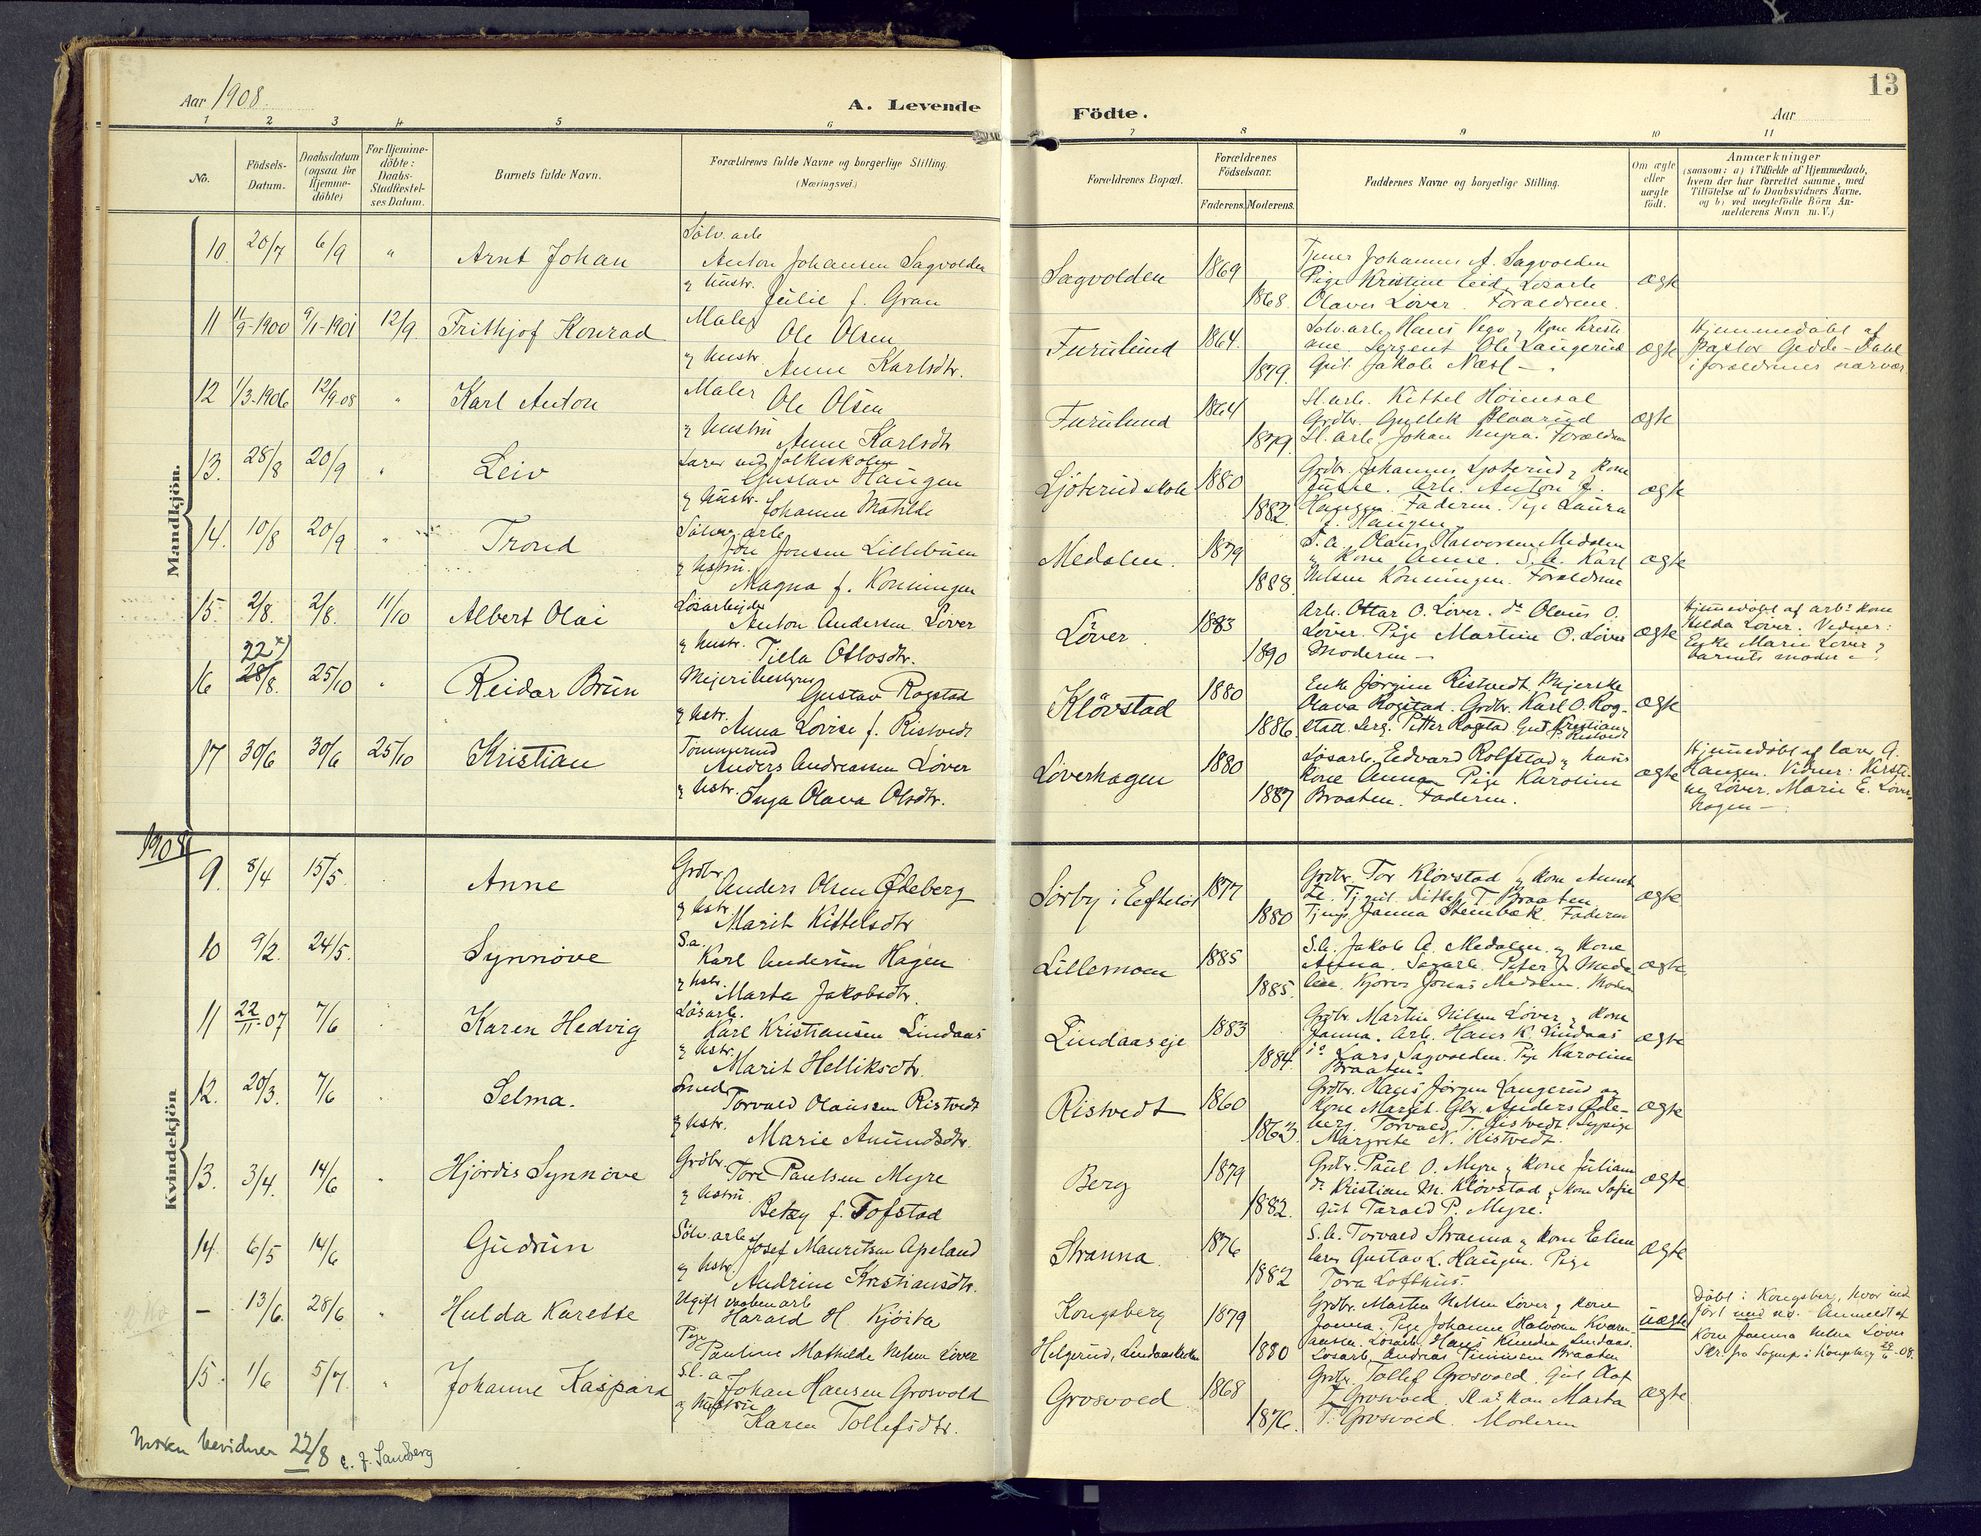 13
Aar 1908.
A. Levende Födte.
Aar
1 2 3 4 5 6 7 8 9 10 11
No.
Födsels-Datum.
Daabsdatum (ogsaa for Hjemme-döbte)
For Hjemme-döbte: Daabs-Stadfestel-ses Datum.
Barnets fulde Navn.
Forældrenes fulde Navne og borgerlige Stilling. (Næringsvei.)
Forældrenes Bopæl.
Forældrenes Födselsaar.
Faderens. Moderens.
Faddernes Navne og borgerlige Stilling.
Om ægte eller uægte födt.
Anmærkninger
(saasom: a) i Tilfælde af Hjemmedaab,
hvem der har forrettet samme, med
Tilföielse af to Daabsvidners Navne,
og b) ved uegtefödte Börn An-
melderens Navn m. V.)
Mandkjön.
10. 20/7 6/9 " Arnt Johan
Sølv.arb
Anton Johansen Sagvolden
og hustr.
Julie f. Gran
Sagvolden 1869 1868.
Tjener Johannes A. Sagvolden
Pige Kristine Eid, Løsarb
Olaves Løver. Forældrene.
ægte
11 11/9-1900 9/1-1901 12/9. Frithjof Konrad
Maler
Ole Olsen
og hustr
Anne Karlsdtr.
Furulund 1864. 1879.
Sølv.arb. Hans Vego og Kone Kristi-
ane. Sergent Ole Langerud
Gut Jakob Næsl -
ægte
Hjemmedøbt af
pastor Gedde-Dahl
i forældrenes nærvær.
12 1/3-1906 12/9-08 " Karl Anton
Maler
Ole Olsen
og hustru
Anne Karlsdtr
Furulund 1864 1879.
Sl.arb. Kittel Høimsal
Grdbr. Gullik
Sl. arb. Johan Myra. Forældrene
ægte
13. 28/8 20/9 " Leiv
Lærer ved folkeskolen
Gustav Haugen
og hustr.
Johanne Matilde
Ljøterud skole 1880 1882.
Grdbr. Johannes Ljøterud og Kone
Arb. Anton J.
Haugen. Faderen. Pige Laura
J. Haugen.
ægte
14. 10/8 20/9 " Trond
Sølvv.arb
Jon Jonsen Lillebuen
og hstru.
Magna f. Konningen
Medalen. 1879 1888.
S.a. Olaus Halvorsen Medalen
og Kone Anne. S.A. Karl
Nilsen Konningen. Forældrene
ægte
15. 2/8. 2/8. 11/10 Albert Olai
Løsarbejder
Anton Andersen Løver
og hustr.
Tilla Ottosdtr.
Løver 1883 1890
Arb. Ottar O. Løver. do Olaus O.
Løver. Pige Martine O. Løver
Moderen -
ægte
Hjemmedøbt af arbs kone
Hilda Løver. Vidner:
Enke Marie Løver og
barnets moder -
22x)
16 28/8. 25/10 " Reidar Brun
Mejeribestyrer
Gustav Rogstad
og hstr.
Anna Lovise f. Ristvedt
Kløvstad 1880 1886.
Enke Jørgine Ristvedt. Mejerske
Olava Rogstad. Grdbr. Karl O. Rog-
stad. Serg. Petter Rogstad. Gut Kristian
Ristvedt
ægte
17 30/6 30/6 25/10 Kristian
Tømmermd
Anders Andreassen Løver
og hstr.
Inga Olava Olsdtr.
Løverhagen 1880 1887
Løsarb. Edvard Rolfstad og hans
kone Anna. Pige Karoline
Braaten. Faderen.
ægte
Hjemmedøbt af lærer G.
Haugen. Vidner: Kirsti-
ne Løver. Marie E. Løver-
hagen -
1908
Kvindekjön
9. 8/4 15/5. Anne
Grdbr
Anders Olsen Ødeberg
og hstr
Marit Kittelsdtr
Sørby i Eftelöt 1877 1880
Grdbr. Tor Kløvstad og kone Annet-
te. Tj.gut. Kittel T. Braaten
Janna Stenbæk. Faderen
ægte
10 9/2. 24/5. Synnøve
S.a.
Karl Andersen Hagen
og hstr.
Marta Jakobsdtr.
Lillemoen 1885 1885.
S.A. Jakob A. Medalen og Kone
Anna. Peter J. Meda-
len. Jonas Medalen. Moderen
ægte
11 22/11-07 7/6 Karen Hedvig
Løsarb.
Karl Kristiansen Lindaas
og hstr.
Marit Helliksdtr.
Lindaaseje 1883 1884.
Grdbr Martin Nilsen Løver og Kone
Janna. Arb. Hans K. Lindaas
do Lars Sagvolden. Pige Karoline
Braaten.
ægte
12. 20/3. 7/6 Selma.
Smed
Torvald Olaussen Ristvedt
og hstr.
Marie Amundsdtr.
Ristvedt 1860 1863.
Grdbr. Hans Jørgen Langerud og
Kone Marit. Gbr. Anders Øde-
berg. Torvald T. Ristvedt. Sypige
Margrete N. Ristvedt.
ægte
13. 3/4. 14/6 " Hjørdis Synnøve
Grdbr.
Tore Paulsen Myre
og hstru
Betsy f. Tofstad
Berg 1879 1882.
Grdbr. Paul O. Myre og kone Juliane
do Kristian M. Kløvstad og kone Sofie
Gut Tarald P. Myre.
ægte
14. 6/5 14/6 Gudrun
Sølv.arb
Josef Mauritsen Apeland
og hstr.
Andrine Kristiansdtr.
Stranna. 1876 1882
S.A. Torvald Stranna og kone Elen
lærer Gustav L. Haugen. Pige
Tora Lofthus.
ægte
- 13/6. 28/6 " Hulda Karette
Ugift vaabenarb
Harald H. Kjøita
Pige
Pauline Mathilde Nilsen Løver
Kongsberg
Helgerud, Lindaas
1879 1880
Grdbr. Martin Nilsen Løver og kone
Janna. Pige Johanne Halvorsen
Løsarb. Hans Lindaas.
Løsarb. Andreas Braaten
uægte
Døbt i Kongsberg, hvor ind-
ført med no. Anmeldt af
kone Janna Nilsen Løver
15. 1/6 5/7. " Johanne Kaspara
Sl. a
Johan Hansen Grosvold
og hustru
Karen Tollefsdtr.
Grosvold. 1868 1876.
Grdbr. Tollef Grosvold. Gut Olaf
T. Grosvold. Marta
T. Grosvold. Moderen
ægte
bevidner 22/8 C. J. Sandberg